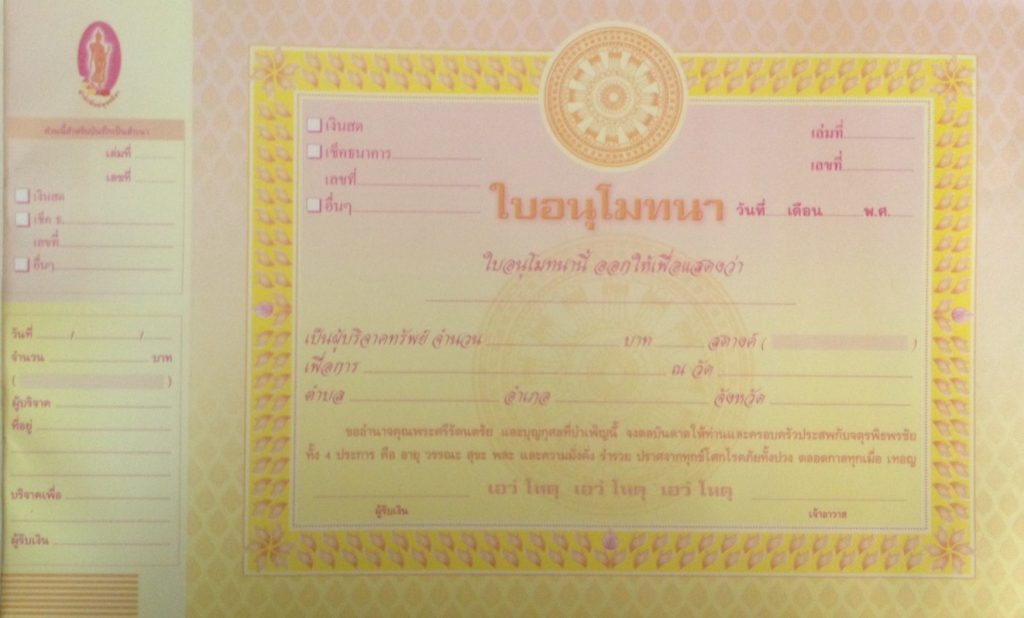 ส่วนนี้สำหรับบันทึกเป็นสำเนา
เล่มที่
เลขที่
เงินสด
เช็ค ธ.
เลขที่
อื่นๆ
วันที่ / /
จำนวน บาท
( )
ผู้บริจาค
ที่อยู่
บริจาคเพื่อ
ผู้รับเงิน
เงินสด
เช็คธนาคาร
เลขที่
อื่นๆ
เล่มที่
เลขที่
ใบอนุโมทนา วันที่ เดือน พ.ศ.
ใบอนุโมทนานี้ ออกให้เพื่อแสดงว่า
เป็นผู้บริจาคทรัพย์ จำนวน บาท สตางค์ ( )
เพื่อการ ณ วัด
ตำบล อำเภอ จังหวัด
ขออำนาจคุณพระศรีรัตนตรัย และบุญกุศลที่บำเพ็ญนี้ จงดลบันดาลให้ท่านและครอบครัวประสพกับจตุรพิธพรชัย
ทั้ง 4 ประการ คือ อายุ วรรณะ สุขะ พละ และความมั่งคั่ง ร่ำรวย ปราศจากทุกข์โศกโรคภัยทั้งปวง ตลอดกาลทุกเมื่อ เทอญ
เอวํ โหตุ เอวํ โหตุ เอวํ โหตุ
ผู้รับเงิน เจ้าอาวาส